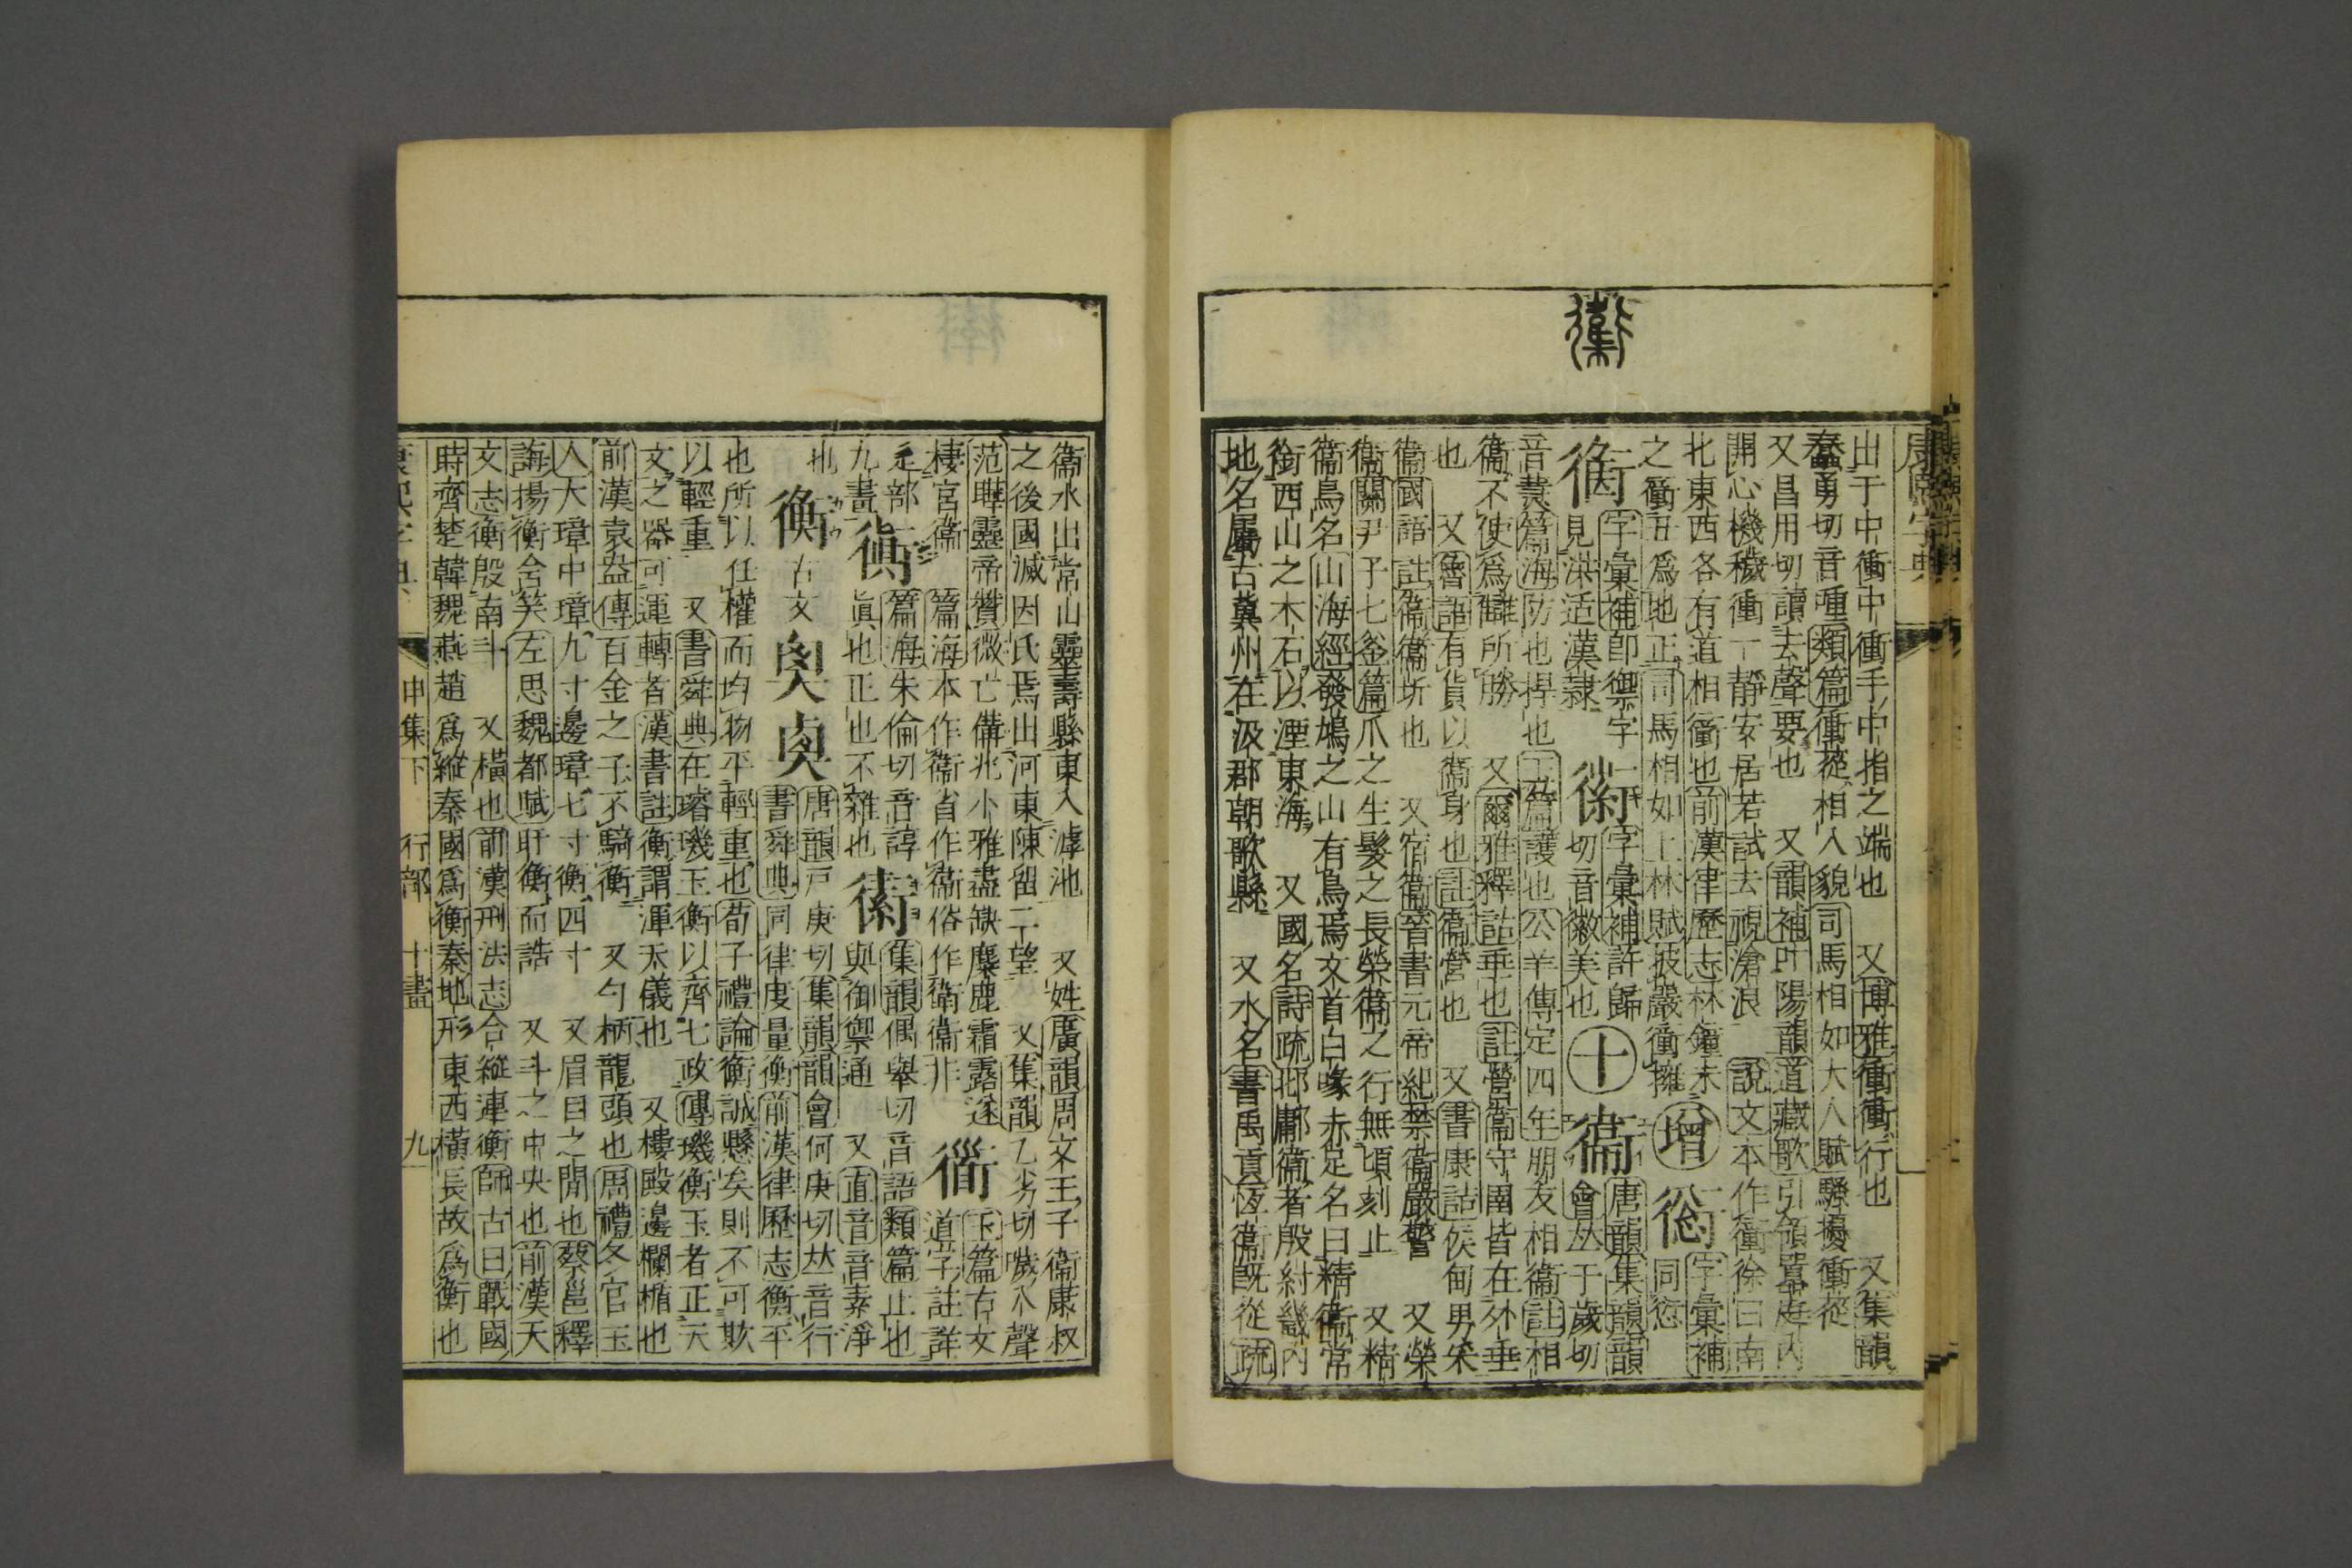 衞
康熙字典
出于中衝中衝手中指之端也 又博雅衝衝行也 又集韻
蠢勇切音喠類篇衝蓯相入貌司馬相如大人賦騷擾衝蓯
又昌用切讀去聲要也 又韻補叶陽韻道藏歌引領囂庭內
開心機穢衝一靜安居若試去視滄浪 說文本作衝徐曰南
北東西各有道相衝也前漢律歷志林鐘未
之衝丑爲地正司馬相如上林賦披巖衝擁 增 字彙補同愆
字彙補卽禦字見渫适漢隷 字彙補許歸切音徽美也 十 衞 唐韻集韻韻會𠀤于歲切
音篲篇海防也捍也玉篇護也公羊傳定四年朋友相衞註相
衞不使爲讎所勝 又爾雅釋詁垂也註營衞守圉皆在外垂
也 又魯語有貨以衞身也註衞營也 又書康誥侯甸男采
衞國語註衞衞圻也 又宿衞晉書元帝紀禁衞嚴警 又榮
衞關尹子七釜篇爪之生髮之長榮衞之行無頃刻止 又精
衞鳥名山海經發鳩之山有鳥焉文首白喙赤足名曰精衞常
銜西山之木石以湮東海 又國名詩疏邶鄘衞者殷紂畿內
地名屬古冀州在汲郡朝歌縣 又水名書禹貢恆衞旣從疏
衞水出常山靈壽縣東入滹池 又姓廣韻周文王子衞康叔
之後國滅因氏焉出河東陳留二望 又集韻乙劣切噦入聲
范曄靈帝贊微亡備兆小雅盡缺麋鹿霜露遂棲宮衞 篇海本作衞省作衞俗作衛衞非 玉篇古文道字註詳
辵部 篇海朱倫切音諄 集韻偶舉切音語類篇止也
九畫 眞也正也不雜也 與御禦通 又直音音素淨
也 衡 古文 奥 𢍰 唐韻戸庚切集韻韻會何庚切𠀤音行
書舜典同律度量衡前漢律歷志衡平
也所以任權而均物平輕重也荀子禮論衡誠懸矣則不可欺
以輕重 又書舜典在璿璣玉衡以齊七政傳璣衡玉者正天
文之器可運轉者漢書註衡謂渾天儀也 又樓殿邊欄楯也
前漢袁盎傳百金之子不騎衡 又勺柄龍頭也周禮冬官玉
人大璋中璋九寸邊璋七寸衡四寸 又眉目之閒也蔡邕釋
誨揚衡舍笑左思魏都賦盱衡而誥 又斗之中央也前漢天
文志衡殷南斗 又橫也前漢刑法志合縱連衡師古曰戰國
時齊楚韓魏燕趙爲縱秦國爲衡秦地形東西橫長故爲衡也
康熙字典 申集下 行部 十畫 九